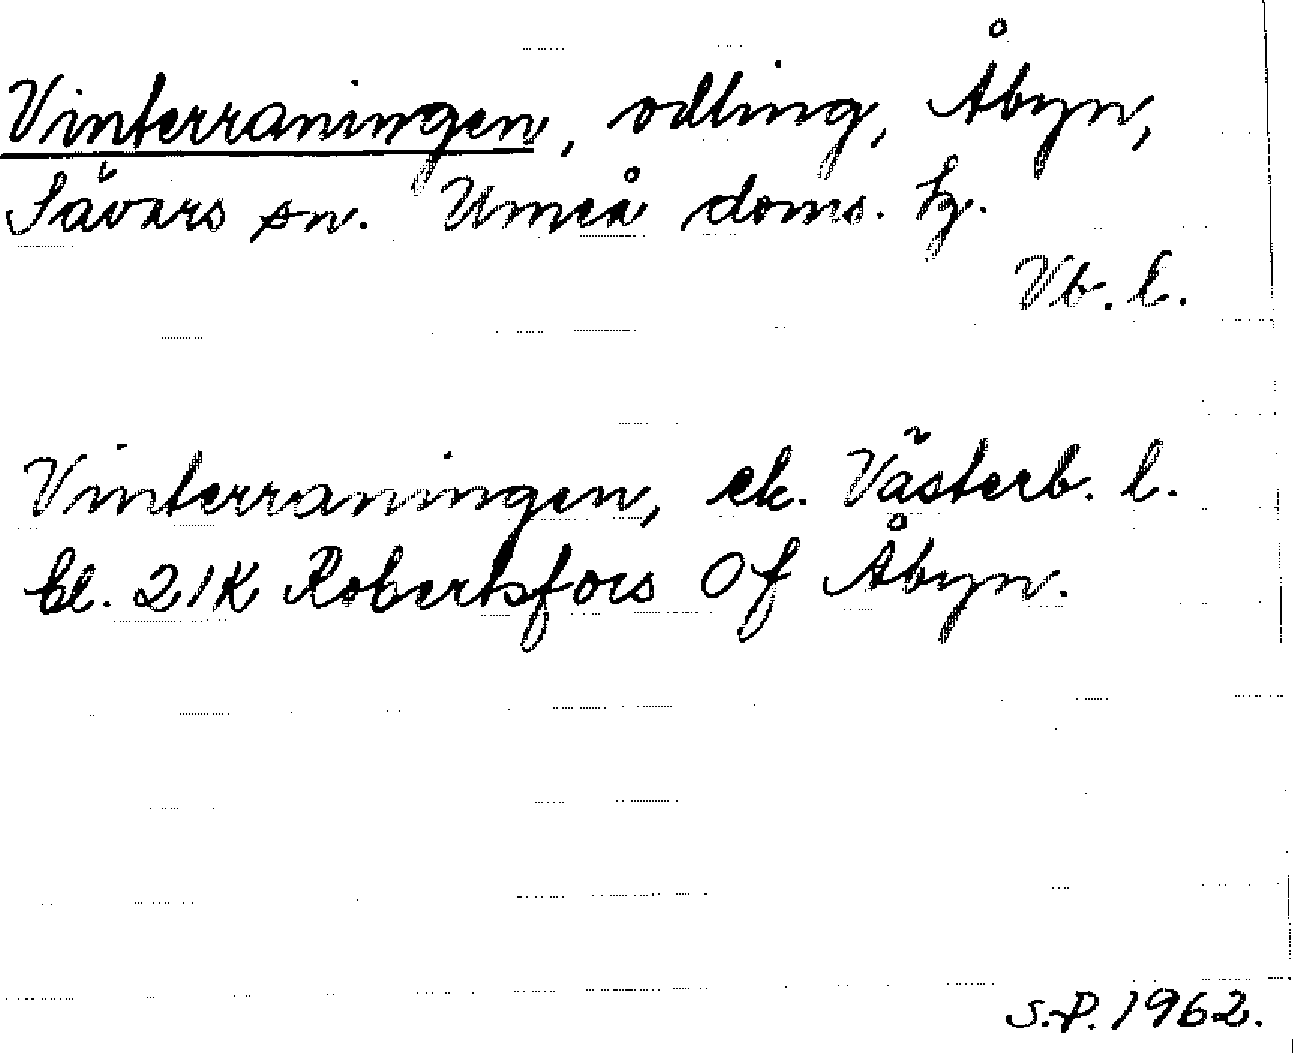 Vinterraningen, odling, Åbyn,
Sävars sn. Umeå doms. hg.
Vb. l.
Vinterraningen, ek. Västerb. l.
bl. 21K Robertsfors Of Åbyn.
S.-P. 1962.